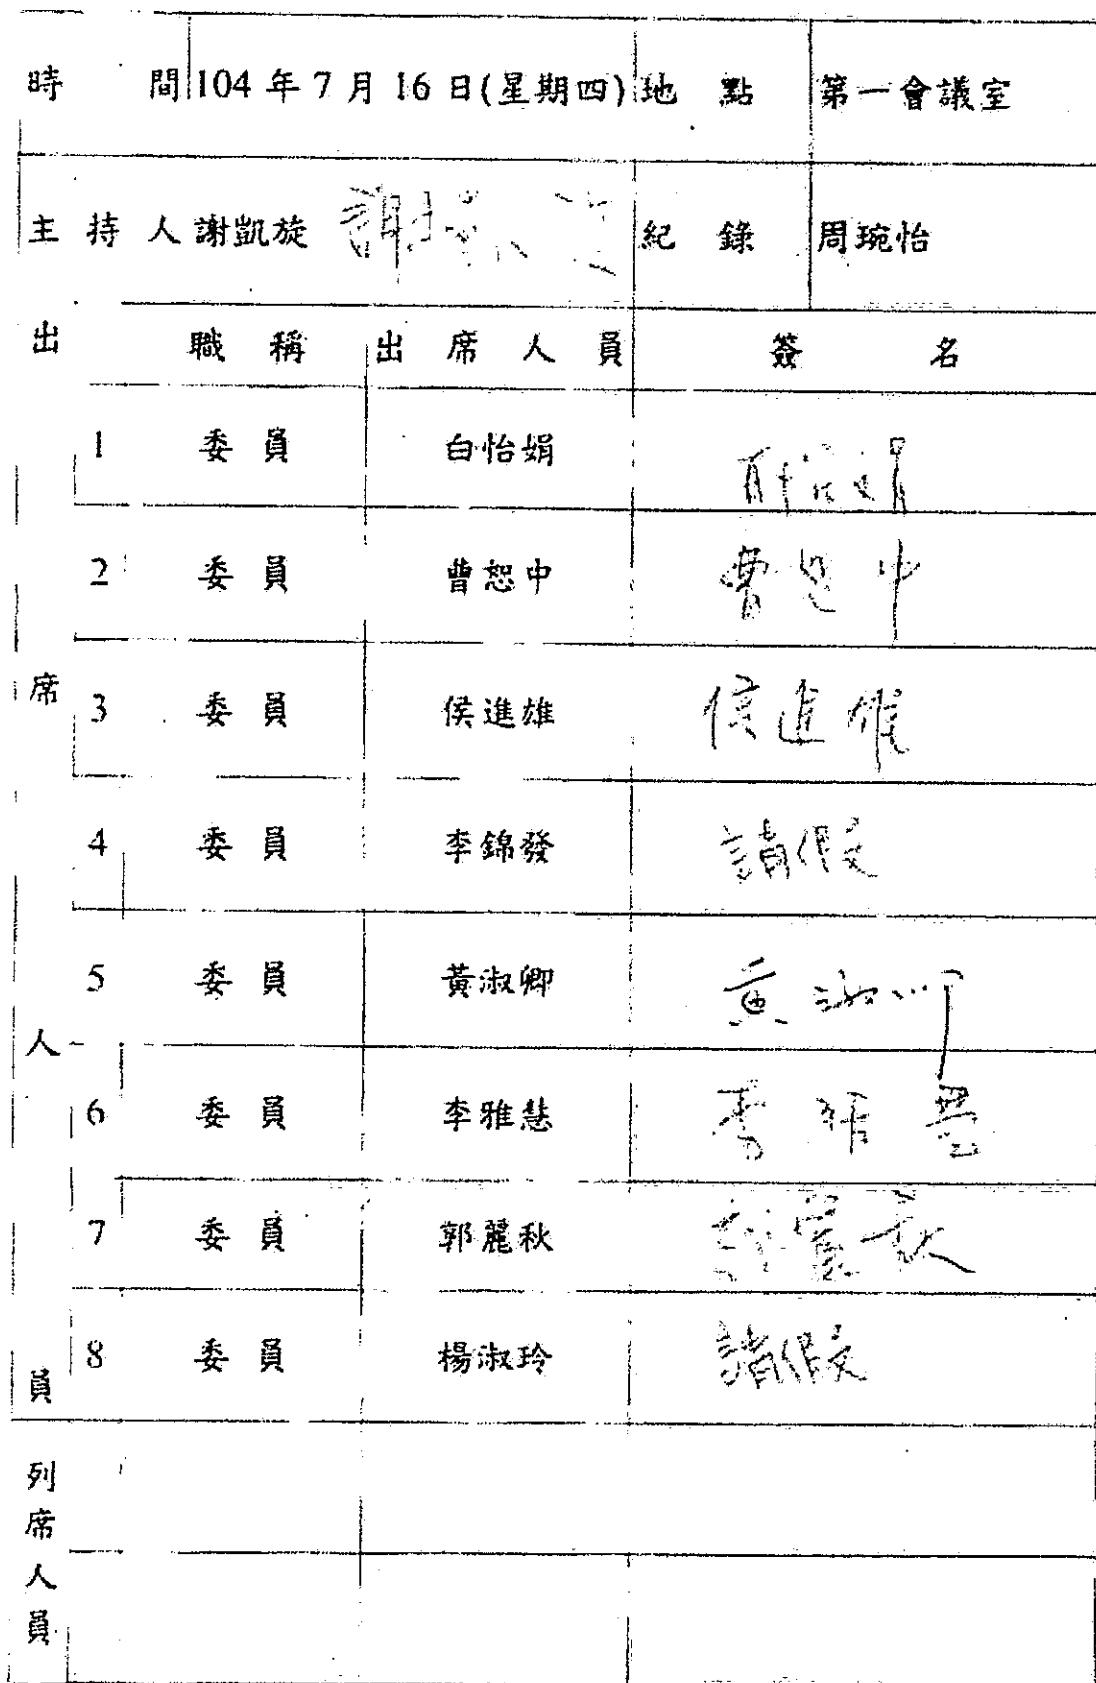 時 間 104 年 7 月 16 日(星期四) 地 點 第一會議室
主 持 人 謝凱旋 紀 錄 周琬怡
出 職 稱 出 席 人 員 簽 名
1 委 員 白怡娟
2 委 員 曹恕中 曹恕中
席 3 委 員 侯進雄 侯進雄
4 委 員 李錦發 請假
5 委 員 黃淑卿 黃淑卿
人
6 委 員 李雅慧 李雅慧
7 委 員 郭麗秋 郭麗秋
8 委 員 楊淑玲 請假
員
列
席
人
員